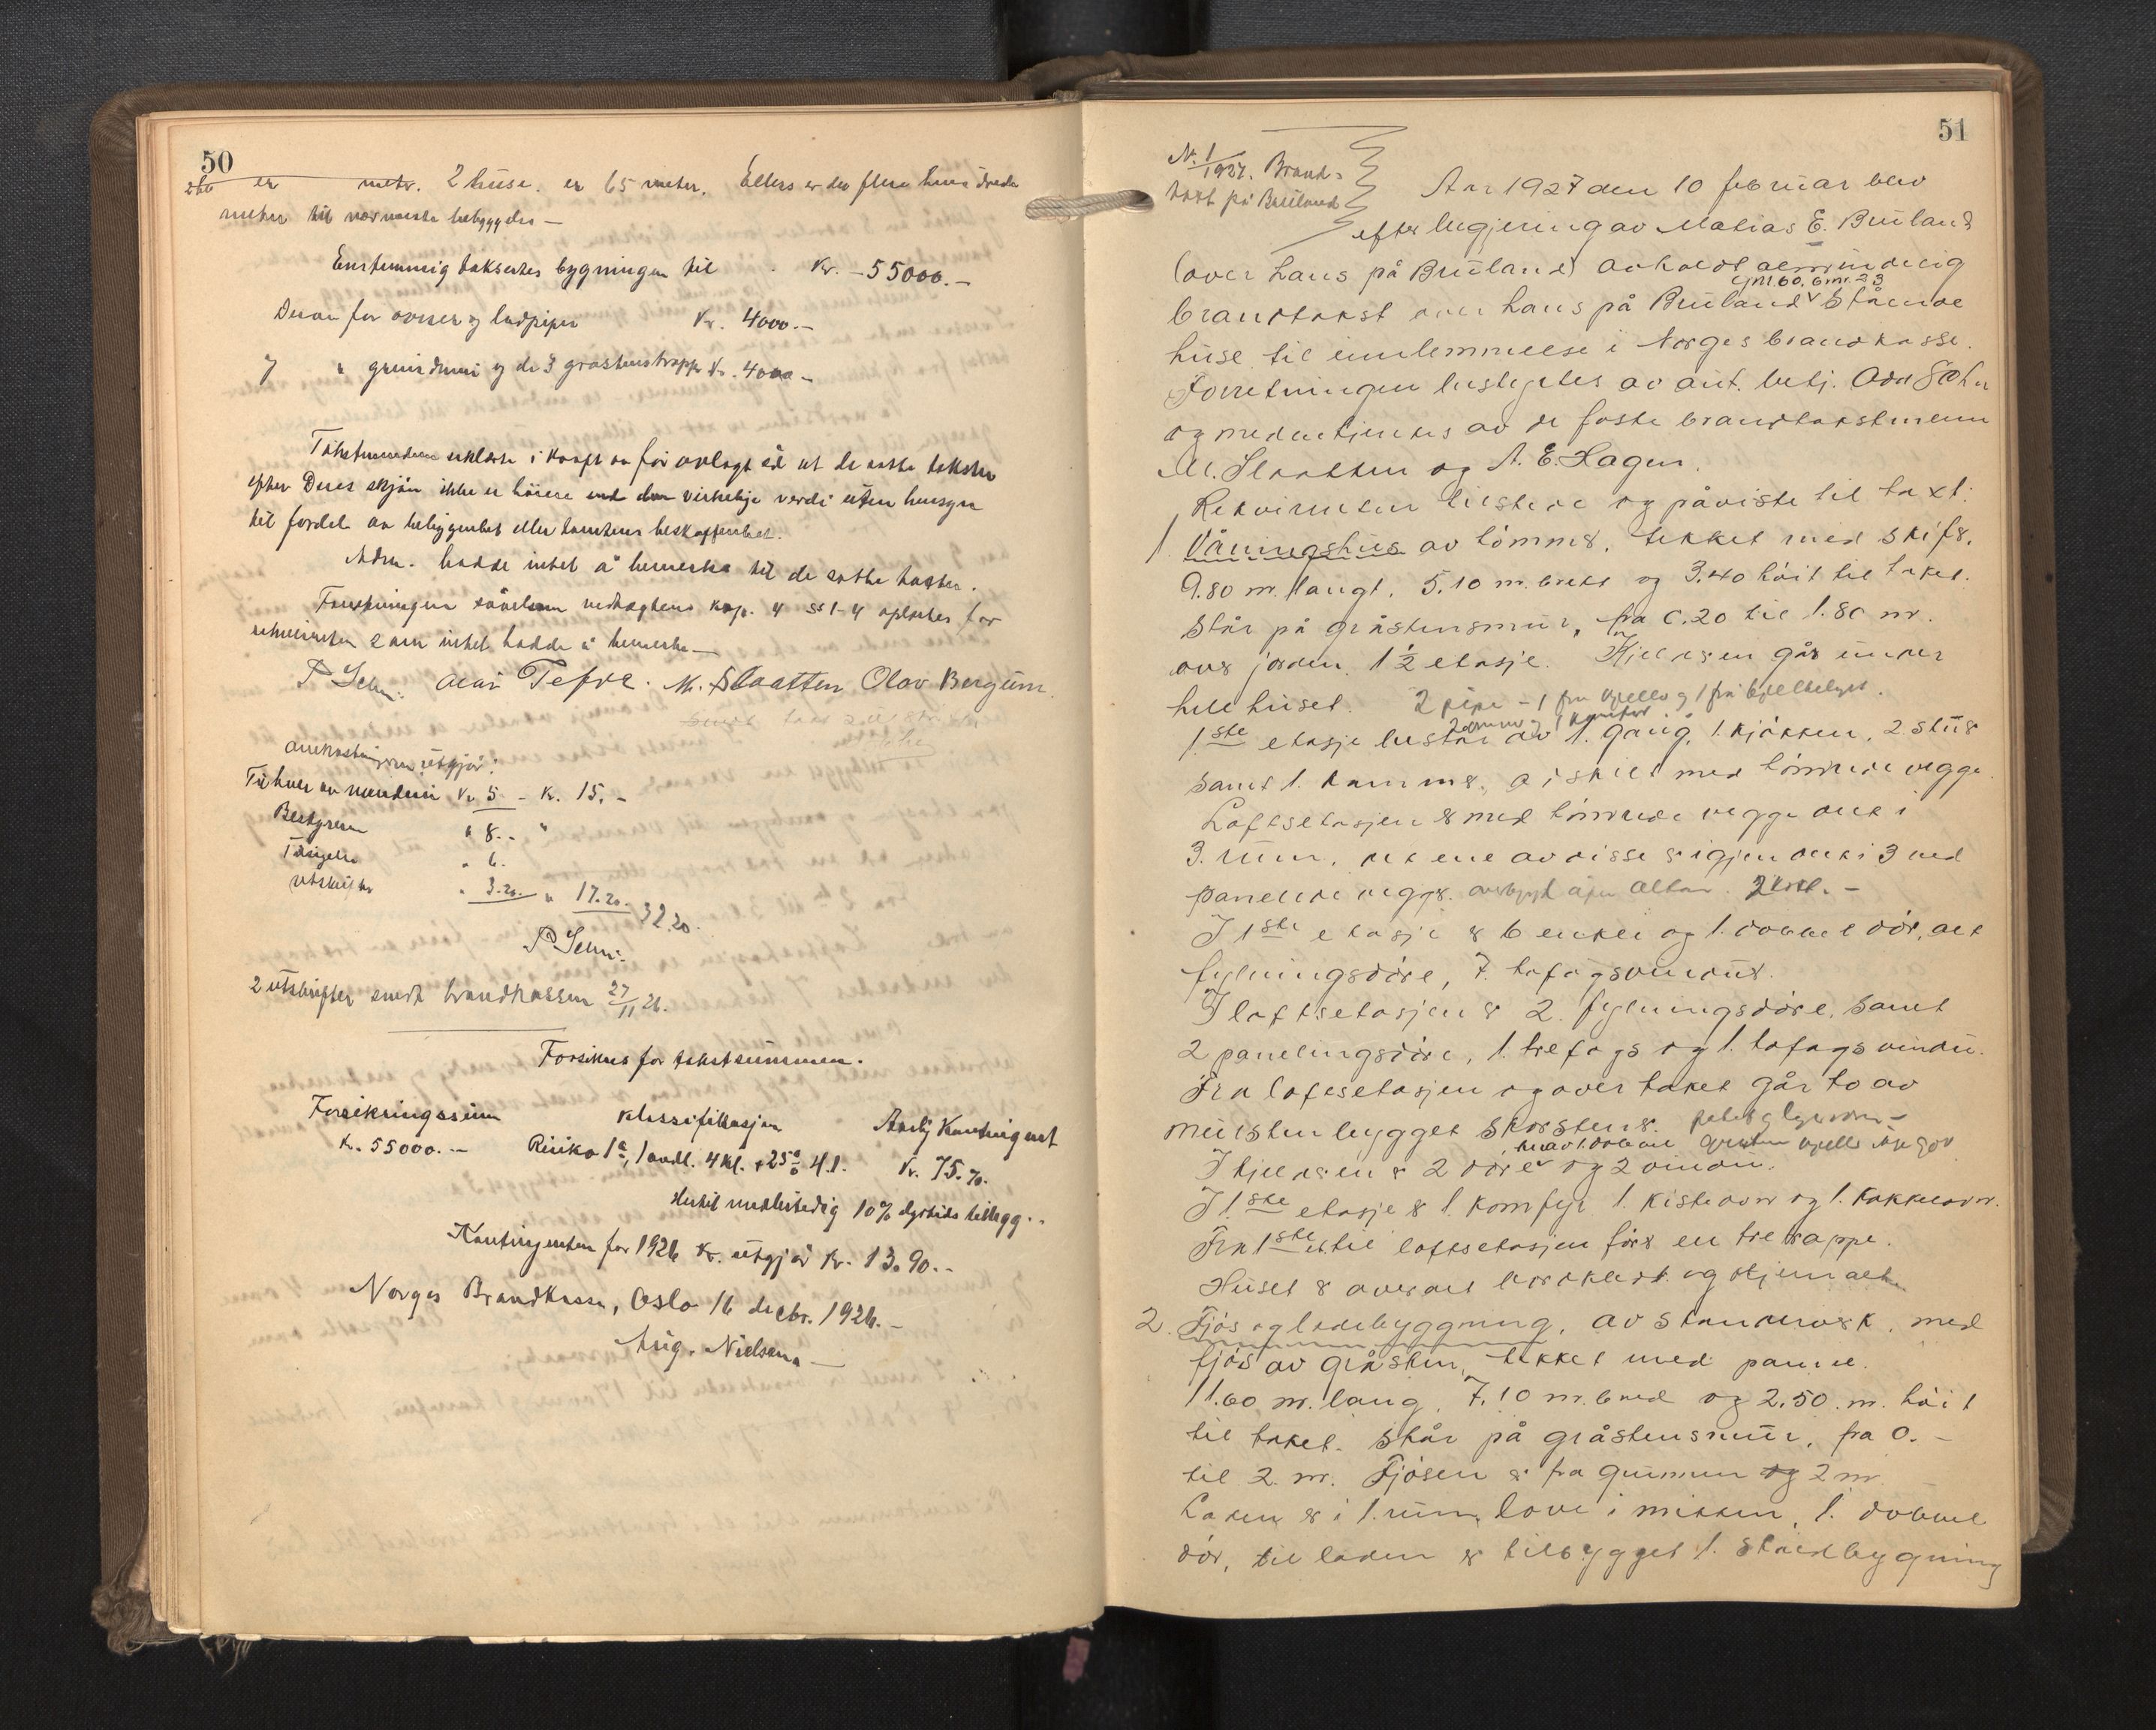 50
er metr. 2 huse. er 65 meter. Ellers er der flere hundrede
meter til nærmeste bebyggelse —
Enstemmig takseres bygningen til Kr. - 55000.-
Derav for ovner og ledpiper Kr. 4000.-
" grundmur og de 3 gråstenstrapper Kr. 4000.-
Takstmendene erklærte i kraft av før avlagt ed at de satte takster
efter Deres skjøn ikke er høiere end den virkelige verdi uten hensyn
til fordel av beliggenhet eller tomtens beskaffenhet.
Adm. hadde intet å bemerke til de satte takster.
Forretningen såvelsom vedtægtens kap. 4 §§ 1-4 oplæstes for
rekvirenten som intet hadde å bemerke —
M. Slaatten Olav Bergum
Omkostningerne utgjør:
Til hver av mendene Kr. 5 - Kr. 15.-
Bestyreren " 8.- "
Tilsigelse " 6.
Utskrifter " 3.20 " 17.20
32.20
2 utskrifter sendt brandkassen 27/11 26.
Forsikres for takstsummen.
Forsikringssum klassifikasjon Aarlig Kontingent
Kr. 55000.-- Risiko 1a, 1 avdl. 4 kl. + 25% Kr. 75.70.
Hertil midlertidig 10% dyrtids tillegg.-
Kontingenten for 1926 Kr. utgjør Kr. 13.90.--
Norges Brandkasse, Oslo 16 decbr. 1926.-
Aug. Nielsen
51
N. 1/1927. Brand-
takst på Bruland
Aar 1927 den 10 februar blev
efter begjering av Matias E. Bruland
(over hans på Bruland) avholdt almindelig
gnr. 60, bnr. 23
brandtakst over hans på Bruland stående
huse til innlemmelse i Norges brandkasse.
Forretningen bestyrtes av aut. betj. Odd
og medbetjentes av de faste brandtakstmenn
M. Slaatten og A. E. Hagen.
Rekvirenten tilstede og påviste til taxt:
1. Våningshus av tømmer, tekket med skifer.
9.80 m. langt, 5.10 m. bredt og 3.40 høit til taket.
Står på gråstensmur, fra 0.20 til 1.80 m.
over jorden. 1 1/2 etasje. Kjelderen går under
hele huset. 2 piper - 1 fra kjeller og 1 fra
1ste etasje består av 1. gang, 1. kjøkken, 2. stuer
samt 1. kammer, adskilt med tømrede vegge.
Loftsetasjen er med tømrede vegge delt i
3. rum, det ene av disse er igjen delt i 3 med
panelede vegger. overbygd åpen altan.
I 1ste etasje er 6 enkle og 1. dobbel dør, alt
fyldningsdøre, 7. tofagsvinduer.
I loftsetasjen er 2. fyldningsdøre, samt
2 panelingsdøre, 1. trefags og 1. tofags vindu.
Fra loftsetasjen og over taket går to av
murstein bygget skorstener.
I kjelderen er 2 døre og 2 vindu.
I 1ste etasje er 1. komfyr 1. kisteovn og 1. kakkelovn.
Fra 1ste til loftsetasjen fører en tretrappe.
Huset er overalt bordklædt og
2. Fjøs og ladebyggning, av stenderverk, med
fjøs av gråsten, tekket med panne.
11.60 m. lang, 7.10 m. bred og 2.50. m. høit
til taket. Står på gråstensmur, fra 0.-
til 2. m. Fjøsen er fra grunnen og 2 m.
Laden er i 1. rum, love i midten, 1. dobbel
dør, til laden er tilbygget 1. staldbygning